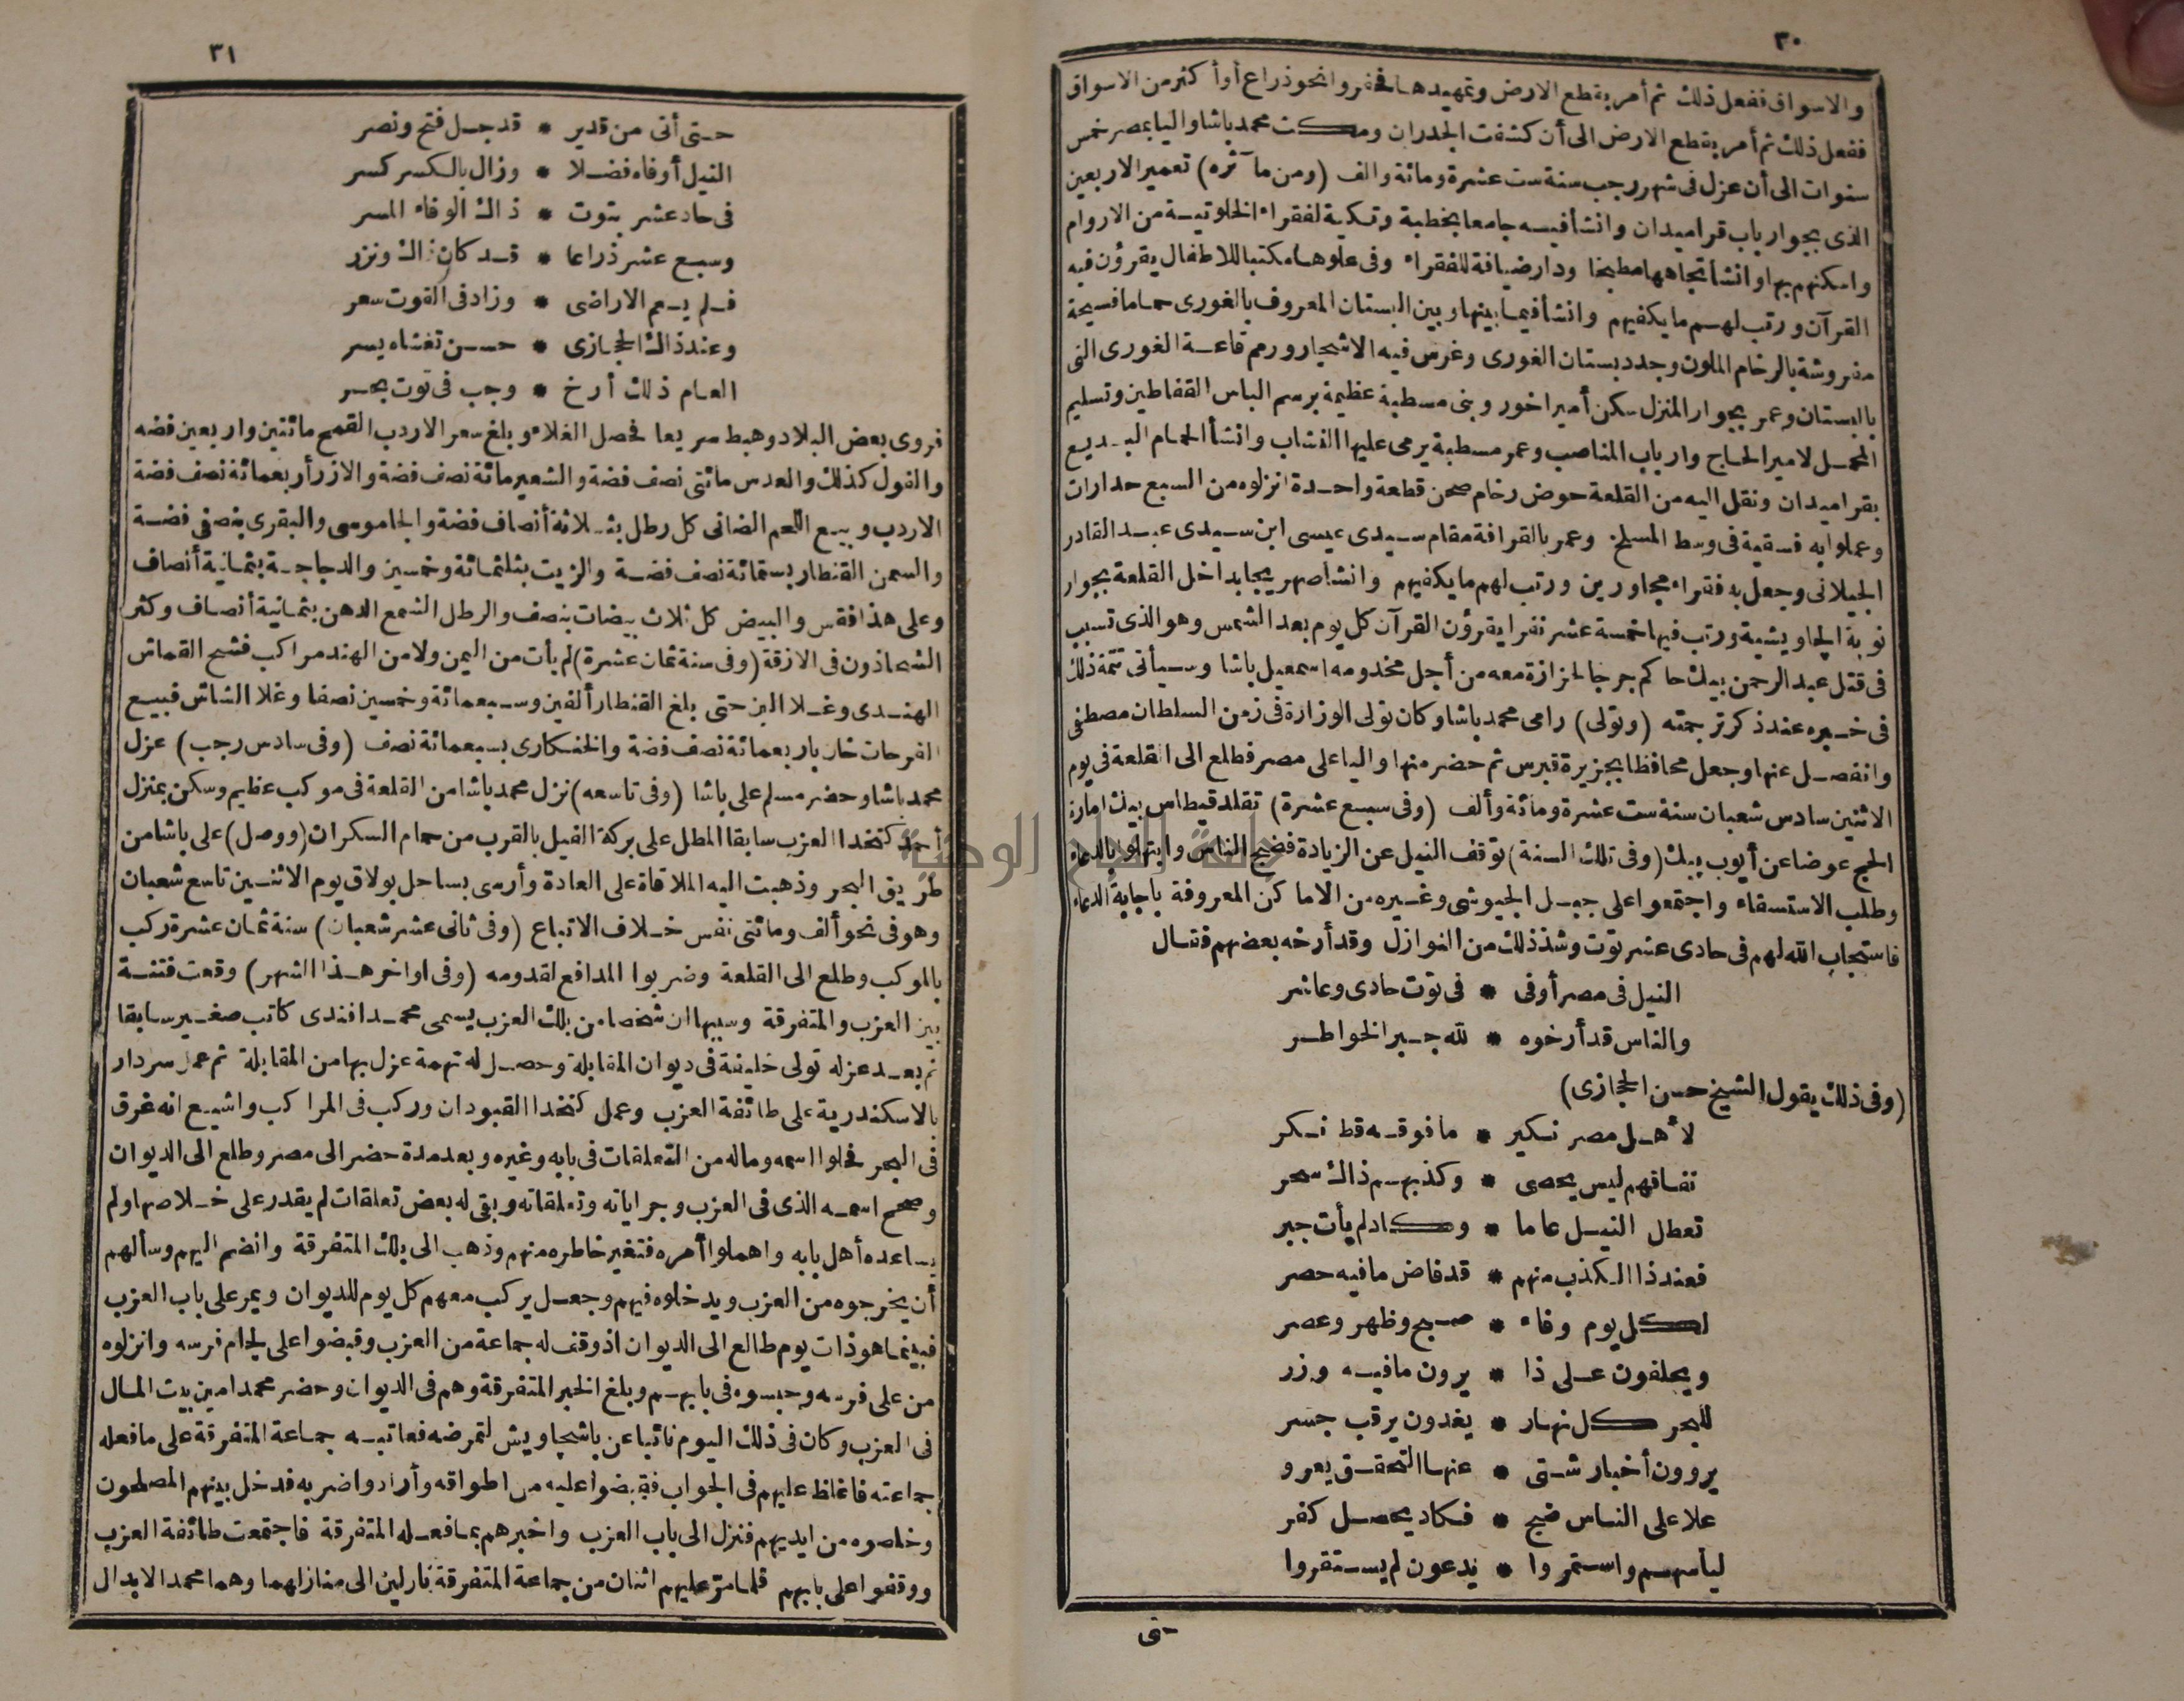 ٣٠
والاسواق ففعل ذلك ثم أمر بقطع الارض وتمهيدها فحفروا نحو ذراع أو أكثر من الاسواق
ففعل ذلك ثم أمر بقطع الارض الى أن كشفت الجدران ومكث محمد باشا واليا بمصر خمس
سنوات الى أن عزل فى شهر رجب سنة ست عشرة ومائة والف (ومن مآثره) تعمير الاربعين
الذى بجوار باب قراميدان وانشأ فيه جامعا بخطبة وتكية لفقراء الخلوتية من الاروام
واسكنهم بها وانشأ تجاهها مطبخا ودار ضيافة للفقراء وفى علوها مكتبا للاطفال يقرؤن فيه
القرآن ورتب لهم ما يكفيهم وانشأ فيما بينها وبين البستان المعروف بالغورى حماما فسيحة
مفروشة بالرخام الملون وجدد بستان الغورى وغرس فيه الاشجار ورمم قاعة الغورى التى
بالبستان وعمر بجوار المنزل سكن أمير اخور وبنى مسطبة عظيمة برسم الباس القفاطين وتسليم
المحمل لامير الحاج وارباب المناصب وعمر مسطبة يرمى عليها النشاب وانشأ الحمام البديع
بقراميدان ونقل اليه من القلعة حوض رخام صحن قطعة واحدة انزلوه من السبع حدارات
وعملوا به فسقية فى وسط المسلخ وعمر بالقرافة مقام سيدى عيسى ابن سيدى عبد القادر
الجيلانى وجعل به فقراء مجاورين ورتب لهم ما يكفيهم وانشأ صهريجا بداخل القلعة بجوار
نوبة الجاويشية ورتب فيها خمسة عشر نفرا يقرؤن القرآن كل يوم بعد الشمس وهو الذى تسبب
فى قتل عبد الرحمن بيك حاكم جرجا لحزازة معه من أجل مخدومه اسمعيل باشا وسيأتى تتمة ذلك
فى خبره عند ذكر ترجمته (وتولى) رامى محمد باشا وكان تولى الوزارة فى زمن السلطان مصطفى
وانفصل عنها وجعل محافظا بجزيرة قبرس ثم حضر منها واليا على مصر فطلع الى القلعة فى يوم
الاثنين سادس شعبان سنة ست عشرة ومائة وألف (وفى سبع عشرة) تقلد قيطاس بيك امارة
الحج عوضا عن أيوب بيك (وفى تلك السنة) توقف النيل عن الزيادة فضج الناس وابتهلوا بالدعاء
وطلب الاستسقاء واجتمعوا على جبل الجيوشى وغيره من الاماكن المعروفة باجابة الدعاء
فاستجاب الله لهم فى حادى عشر توت وشذ ذلك من النوازل وقد أرخه بعضهم فقال
النيل فى مصر أوفى * فى توت حادى وعاشر
والناس قد أرخوه * لله جبر الخواطر
(وفى ذلك يقول الشيخ حسن الحجازى)
لأهل مصر نكير * ما فوقه قط نكر
نفاقهم ليس يحصى * وكذبهم ذاك سحر
تعطل النيل عاما * وكاد لم يأت جبر
فعند ذا الكذب منهم * قد فاض ما فيه حصر
لكل يوم وفاء * صبح وظهر وعصر
ويحلفون على ذا * يرون ما فيه وزر
للبحر كل نهار * يغدون يرقب جسر
يروون أخبار شتى * عنها التحقق يعرو
علا على الناس ضج * فكاد يحصل كفر
ليأسهم واستمروا * يدعون لم يستقروا
٣١
حتى أتى من قدير * قد جل فتح ونصر
النيل أوفاه فضلا * وزال بالكسر كسر
فى حاد عشر بتوت * ذاك الوفاء المسر
وسبع عشر ذراعا * قد كان ذاك ونزر
فلم يعم الاراضى * وزاد فى القوت سعر
وعند ذاك الحجازى * حسن تغشاه يسر
العام ذلك أرخ * وجب فى توت بحر
فروى بعض البلاد وهبط سريعا فحصل الغلاء وبلغ سعر الاردب القمح مائتين واربعين فضه
والفول كذلك والعدس مائتى نصف فضة والشعير مائة نصف فضة والارز أربعمائة نصف فضة
الاردب وبيع اللحم الضانى كل رطل بثلاثة أنصاف فضة والجاموسى والبقرى بنصفى فضة
والسمن القنطار بستمائة نصف فضة والزيت بثلثمائة وخمسين والدجاجة بثمانية أنصاف
وعلى هذا فقس والبيض كل ثلاث بيضات بنصف والرطل الشمع الدهن بثمانية أنصاف وكثر
الشحاذون فى الازقة (وفى سنة ثمان عشرة) لم يأت من اليمن ولا من الهند مراكب فشح القماش
الهندى وغلا البن حتى بلغ القنطار ألفين وسبعمائة وخمسين نصفا وغلا الشاش فبيع
الفرحات خان باربعمائة نصف فضة والخنكارى بسبعمائة نصف (وفى سادس رجب) عزل
محمد باشا وحضر مسلم على باشا (وفى تاسعه) نزل محمد باشا من القلعة فى موكب عظيم وسكن بمنزل
أحمد كتخدا العزب سابقا المطل على بركة الفيل بالقرب من حمام السكران (ووصل) على باشا من
طريق البحر وذهبت اليه الملاقاة على العادة وأرسى بساحل بولاق يوم الاثنين تاسع شعبان
وهو فى نحو ألف ومائتى نفس خلاف الاتباع (وفى ثانى عشر شعبان) سنة ثمان عشرة ركب
بالموكب وطلع الى القلعة وضربوا المدافع لقدومه (وفى اواخر هذا الشهر) وقعت فتنة
بين العزب والمتفرقة وسببها ان شخصا من بلك العزب يسمى محمد افندى كاتب صغير سابقا
ثم بعد عزله تولى خليفة فى ديوان المقابلة وحصل له تهمة عزل بها من المقابلة ثم عمل سردار
بالاسكندرية على طائفة العزب وعمل كتخدا القبودان وركب فى المراكب واشيع انه غرق
فى البحر فحلوا اسمه وماله من التعلقات فى بابه وغيره وبعد مدة حضر الى مصر وطلع الى الديوان
وصحح اسمه الذى فى العزب وجراياته وتعلقاته وبقى له بعض تعلقات لم يقدر على خلاصها ولم
يساعده أهل بابه واهملوا أمره فتغير خاطره منهم وذهب الى بلك المتفرقة وانضم اليهم وسألهم
أن يخرجوه من العزب ويدخلوه فيهم وجعل يركب معهم كل يوم للديوان ويمر على باب العزب
فبينما هو ذات يوم طالع الى الديوان اذ وقف له جماعة من العزب وقبضوا على لجام فرسه وانزلوه
من على فرسه وحبسوه فى بابهم وبلغ الخبر المتفرقة وهم فى الديوان وحضر محمد امين بيت المال
فى العزب وكان فى ذلك اليوم نائبا عن باشجاويش لتمرضه فعاتبه جماعة المتفرقة على ما فعله
جماعته فاغلظ عليهم فى الجواب فقبضوا عليه من اطواقه وأرادوا ضربه فدخل بينهم المصلحون
وخلصوه من ايديهم فنزل الى باب العزب واخبرهم بما فعله المتفرقة فاجتمعت طائفة العزب
ووقفوا على بابهم فلما مر عليهم اثنان من جماعة المتفرقة نازلين الى منازلهما وهما محمد الابدال